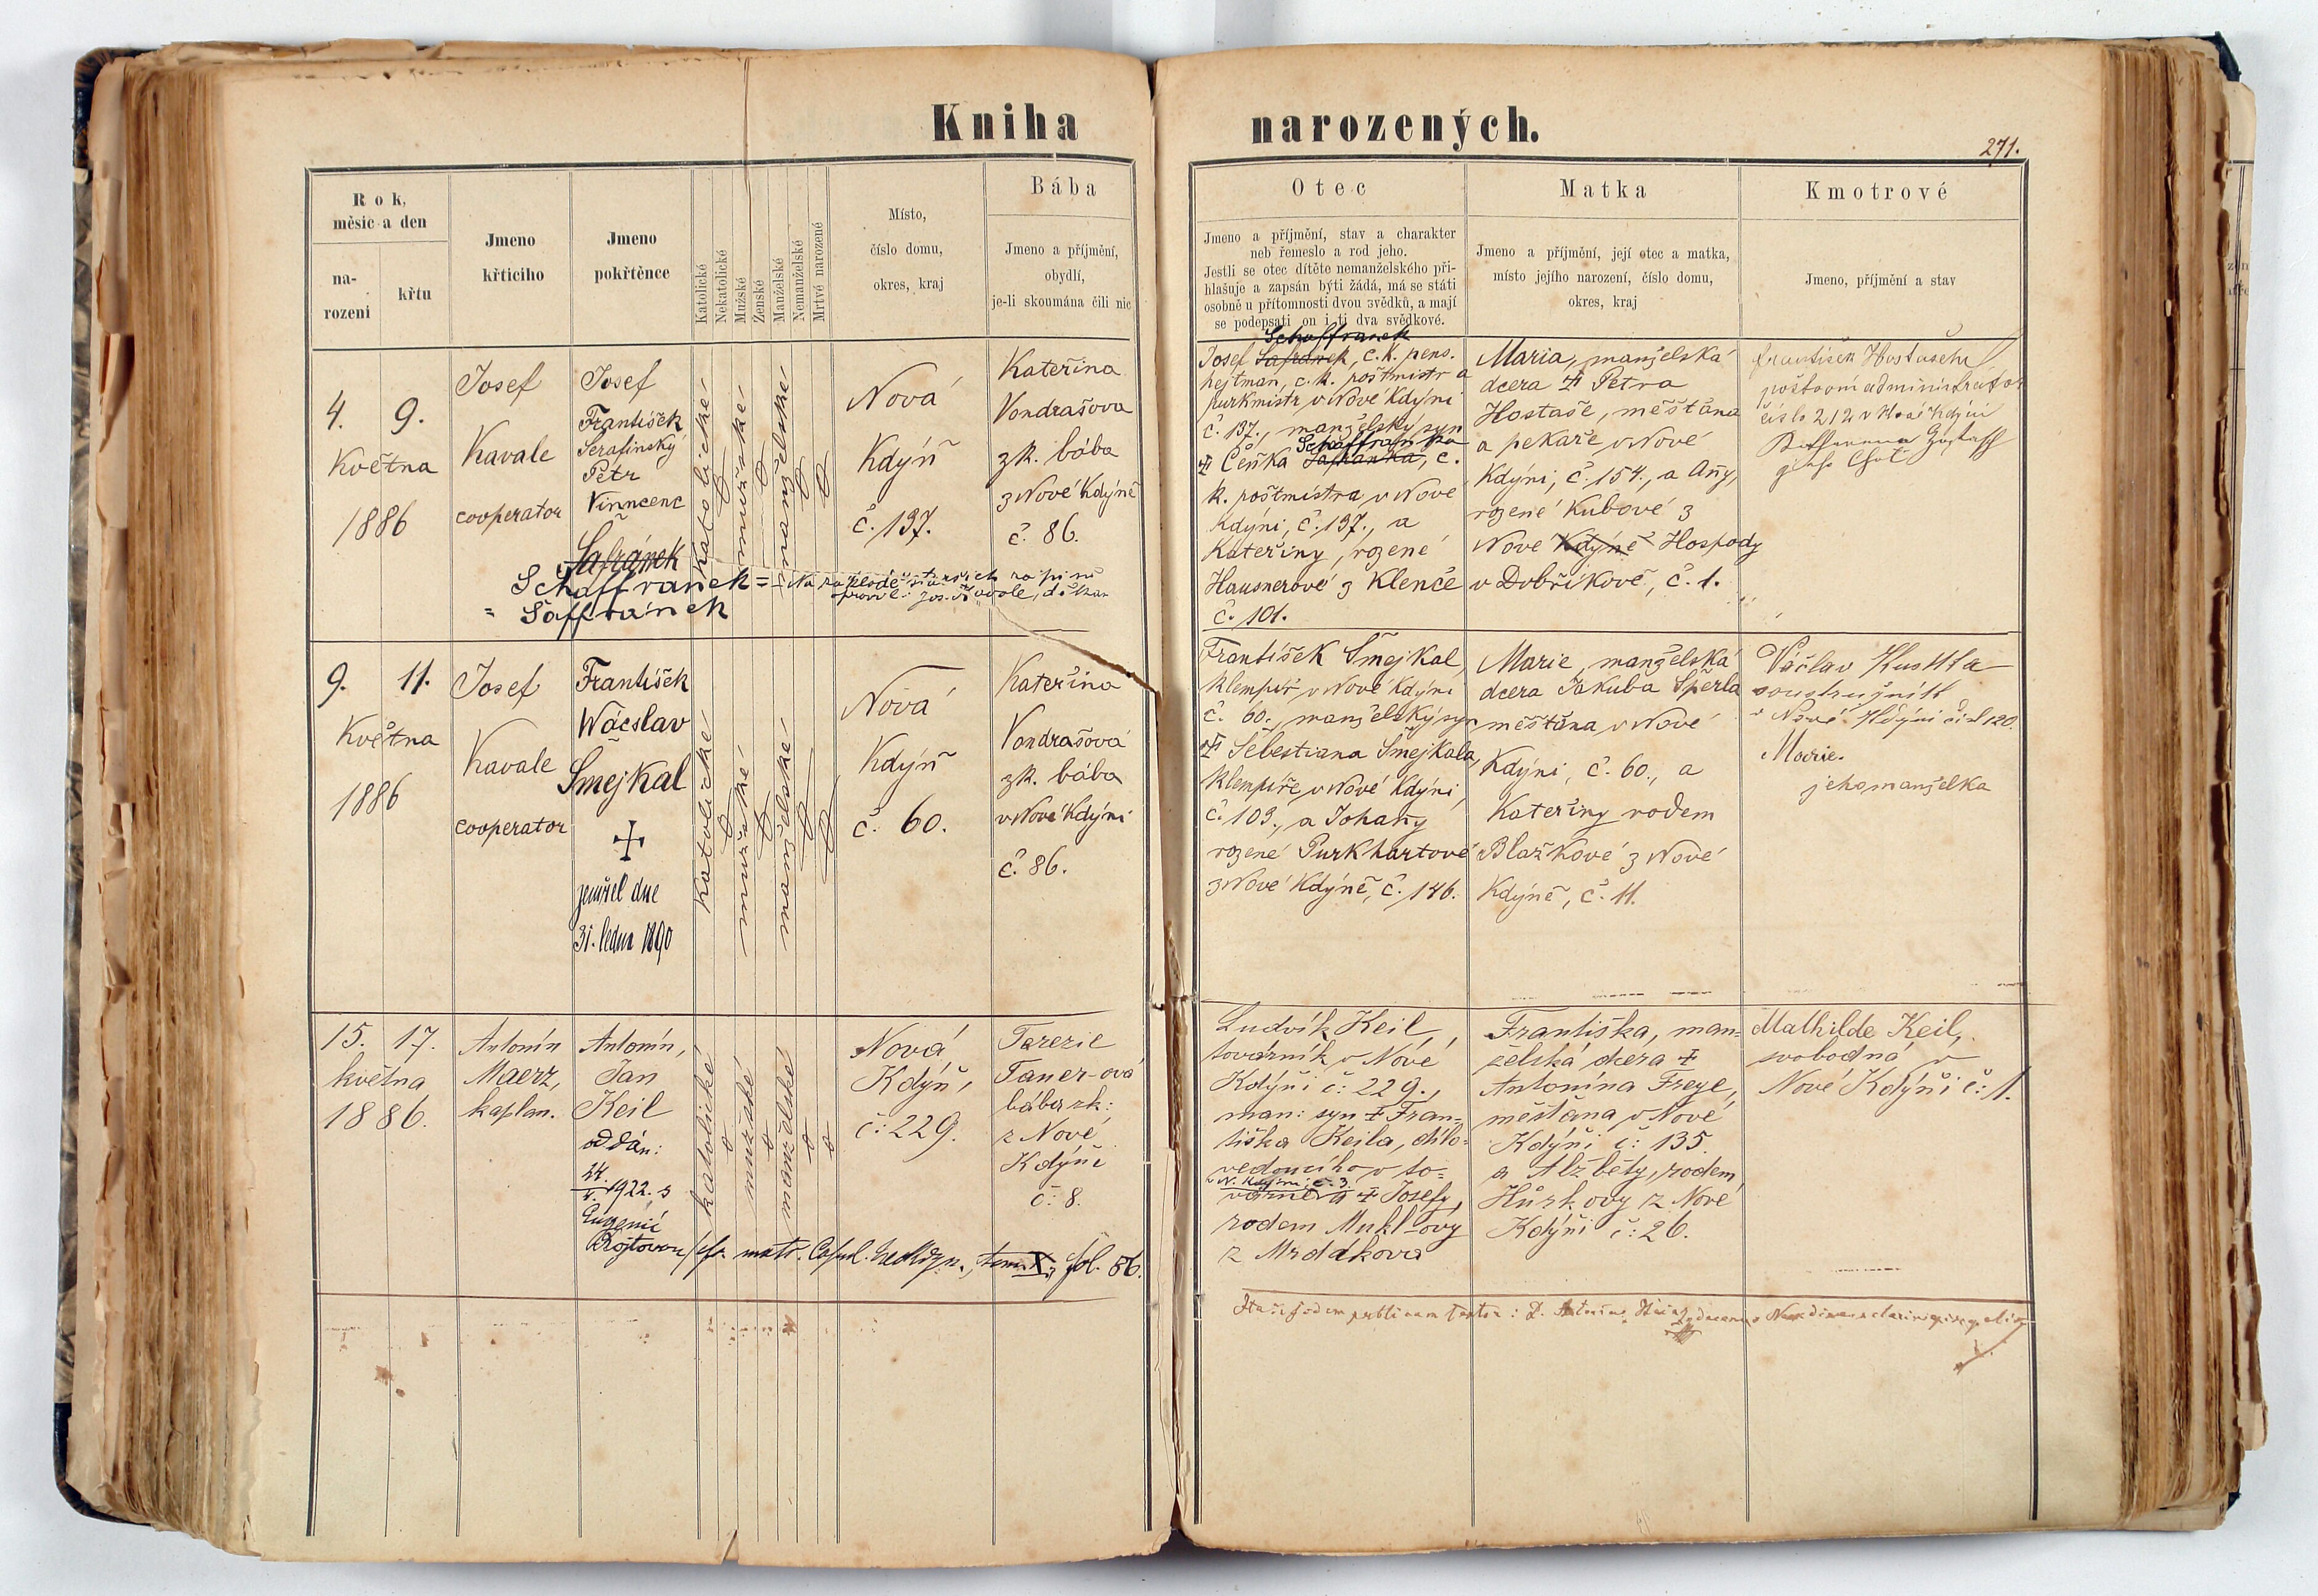 Kniha narozených.
271.
Rok,
měsíc a den
na-
rození
křtu
Jmeno
křticího
Jmeno
pokřtěnce
Katolické
Nekatolické
Mužské
Ženské
Manželské
Nemanželské
Mrtvé narozené
Místo,
číslo domu,
okres, kraj
Bába
Jmeno a příjmění,
obydlí,
je-li skoumána čili nic
Otec
Jmeno a příjmění, stav a charakter
neb řemeslo a rod jeho.
Jestli se otec dítěte nemanželského při-
hlašuje a zapsán býti žádá, má se státi
osobně u přítomnosti dvou svědků, a mají
se podepsati on i ti dva svědkové.
Matka
Jmeno a příjmění, její otec a matka,
místo jejího narození, číslo domu,
okres, kraj
Kmotrové
Jmeno, příjmění a stav
4. 9.
Května
1886
Josef
Kavale
cooperator
Josef
František
Serafinský
Petr
Vinncenc
Šafránek
Schaffranek = Na základě starších zápisů
= Šaffránek
katolické
mužské
manželské
Nová
Kdýň
č. 137.
Kateřina
Vondrašova
zk. bába
z Nové Kdýně
č. 86.
Schaffranek
Josef Šafránek, c. k. pens.
hejtman, c. k. poštmistr a
purkmistr v Nové Kdýni
č. 137., manželský syn
Schaffranka
† Čeňka Šafránka, c.
k. poštmistra v Nové
Kdýni, č. 137., a
Kateřiny, rozené
Hausnerové z Klenče
č. 101.
Maria, manželská
dcera † Petra
Hostaše, měšťana
a pekaře v Nové
Kdýni, č. 154., a Any,
rozené Kubové z
Nové Kdýně Hospody
v Dobříkově, č. 1.
poštovní administrátor
číslo 212 v Nové Kdýni
9. 11.
Května
1886
Josef
Kavale
cooperator
František
Wácslav
Šmejkal
zemřel dne
31. ledna 1890
katolické
mužské
manželské
Nová
Kdýň
č. 60.
Kateřina
Vondrašová
zk. bába
v Nové Kdýni
č. 86.
František Šmejkal,
klempíř v Nové Kdýni
č. 60., manželský syn
† Šebestiana Šmejkala,
klempíře v Nové Kdýni,
č. 103., a Johany
rozené Purkhartové
z Nové Kdýně, č. 146.
Marie, manželská
dcera Jakuba Šperla
měšťana v Nové
Kdýni, č. 60., a
Kateřiny rodem
Blažkové z Nové
Kdýně, č. 11.
Václav Kustka
soustružník
v Nové Kdýni čís 120.
Marie.
jeho manželka
15. 17.
května
1886.
Antonín
Maerz,
kaplan.
Antonín,
Jan
Keil
oddán:
1922. s
Eugenií
katolické
mužské
manželské
Nová
Kdýň,
č: 229.
Terezie
Taner-ová
bába zk:
z Nové
Kdýně
č: 8.
Ludvík Keil,
továrník v Nové
Kdýni č: 229.,
man: syn † Fran-
tiška Keila, dílo-
vedoucího v to-
v N. Kdýni č. 3.
várně a † Josefy,
rodem Mukl-ovy
z Mrdákova
Františka, man-
želská dcera †
Antonína Freye,
měšťana v Nové
Kdýni č: 135.
a Alžběty, rodem
Hůrkovy z Nové
Kdýni č: 26.
Mathilde Keil,
svobodná v
Nové Kdýni č: 1.
fol. 86.